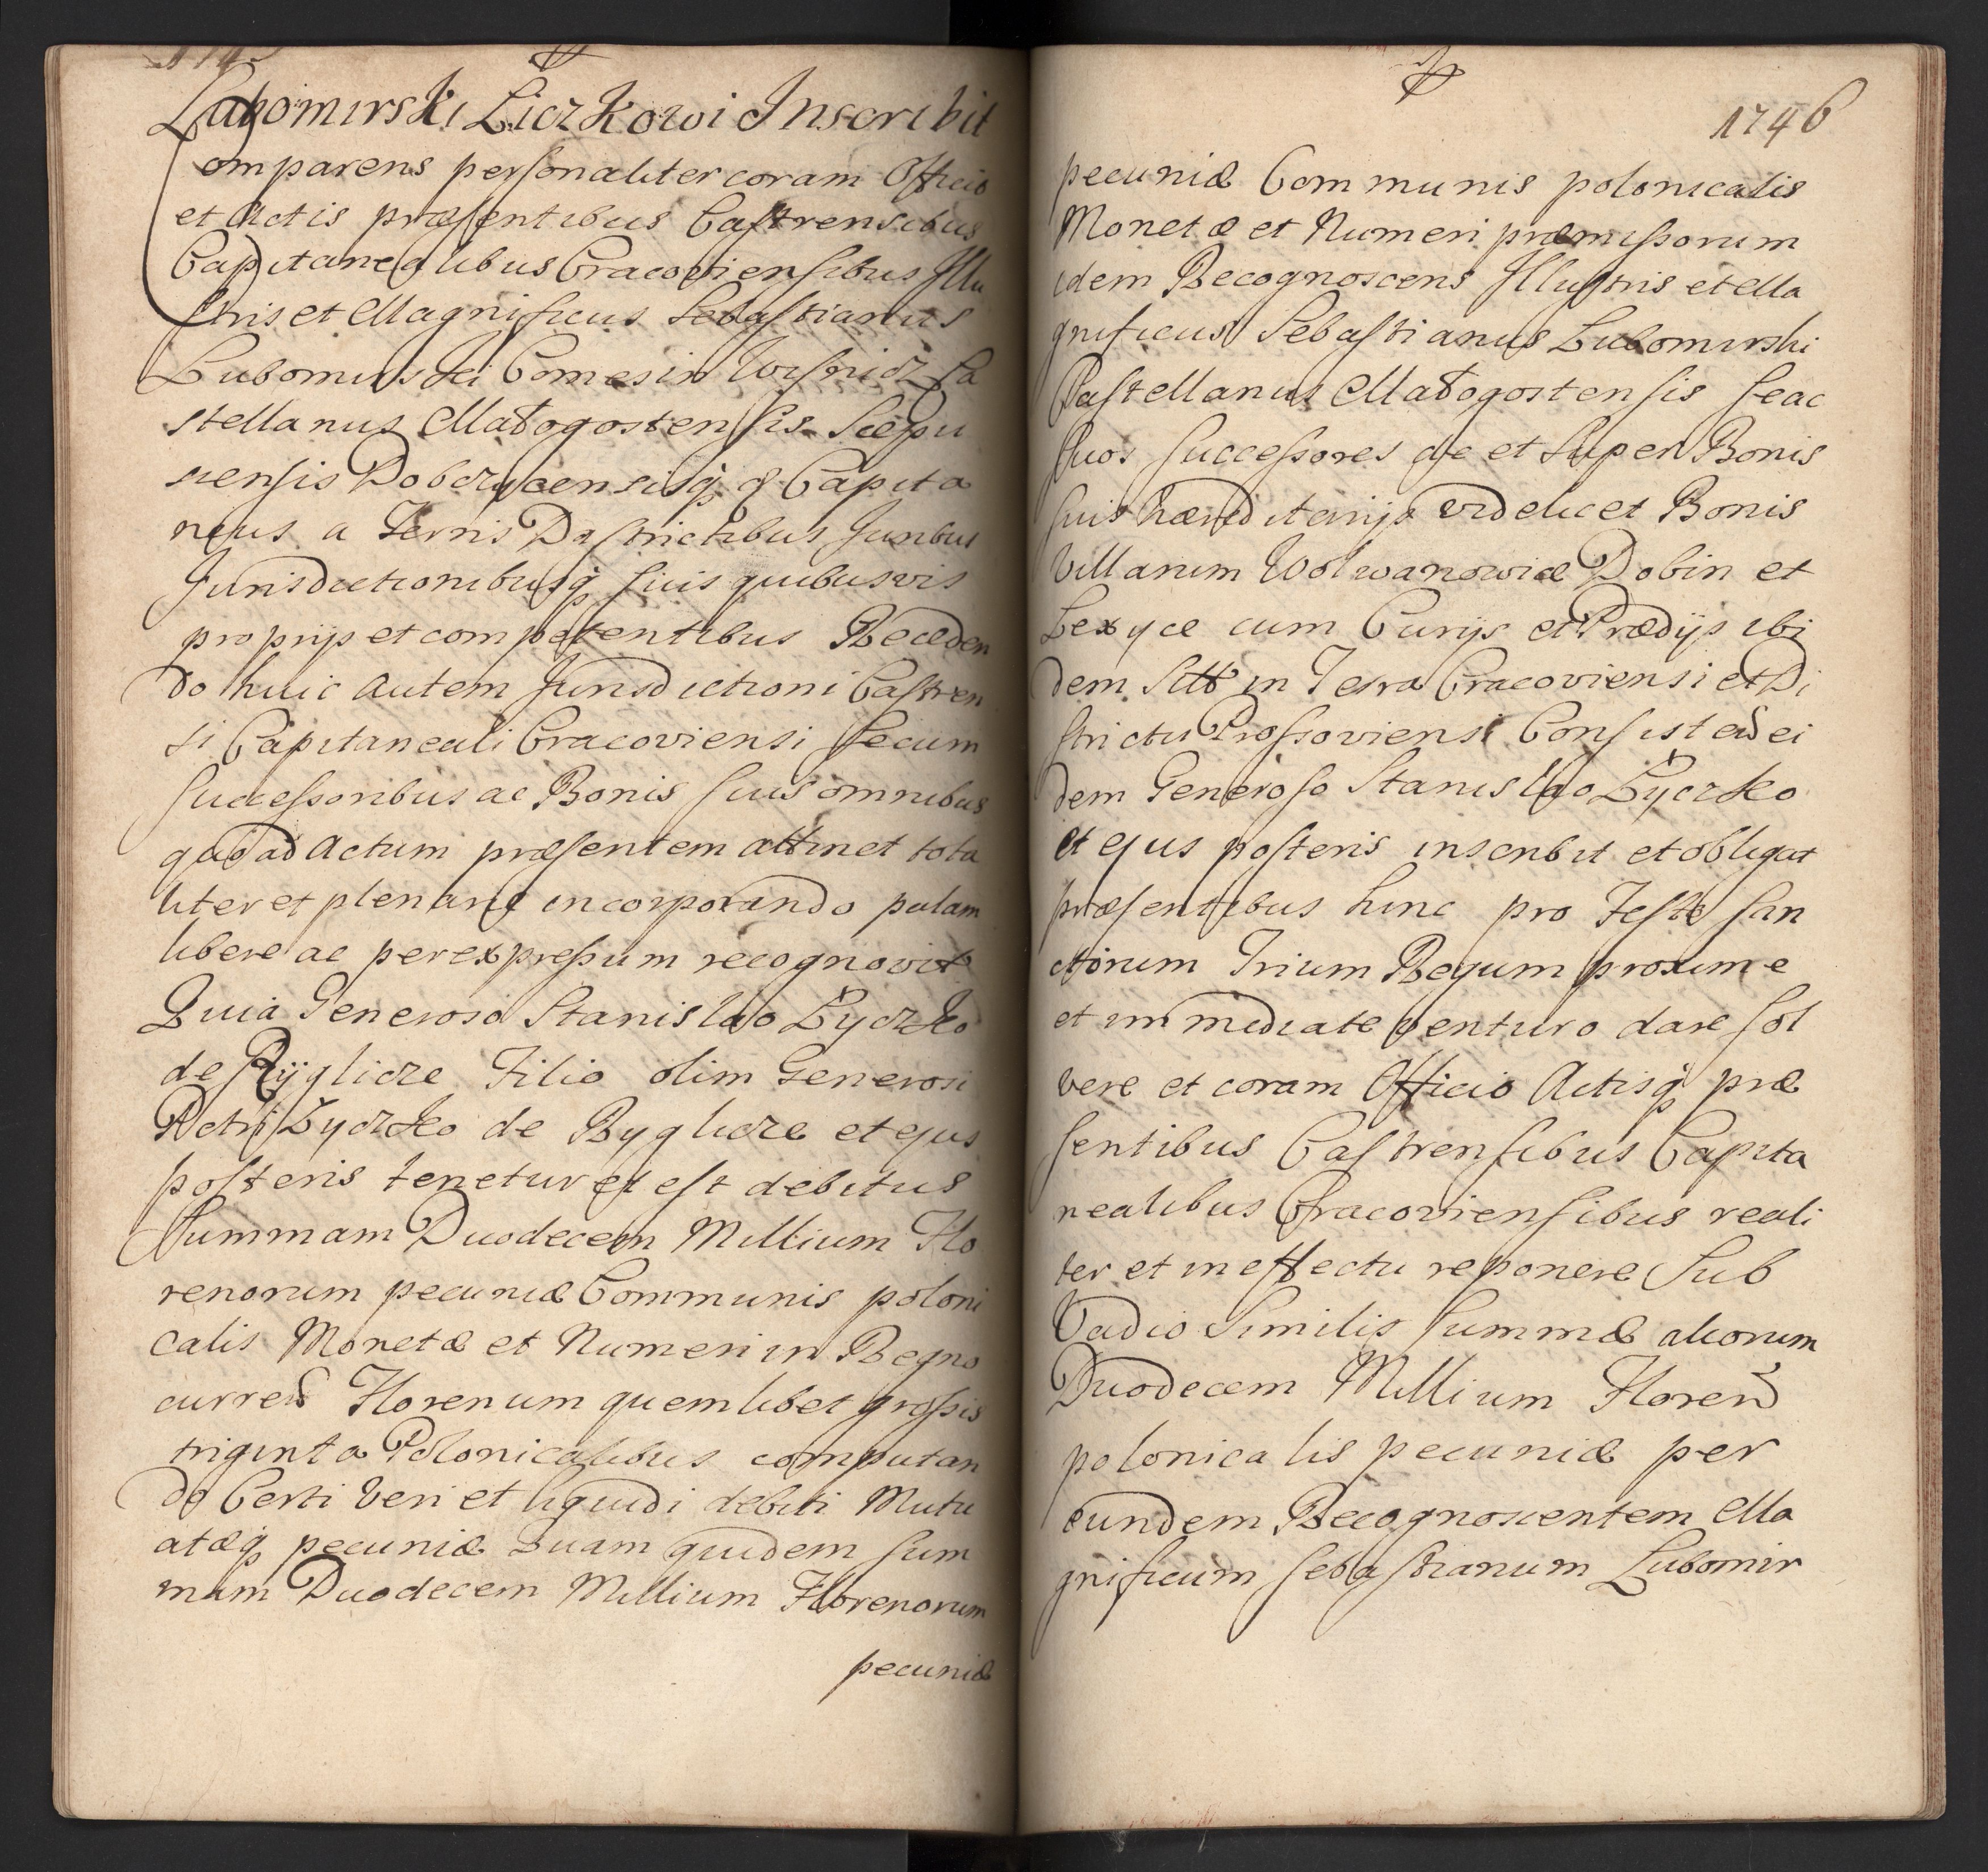 1745
Lubomirski Liczkowi Inscribit
Comparens personaliter coram Officio
et Actis præsentibus Castrensibus
Capitanealibus Cracoviensibus Illu
stris et Magnificus Sebastianus
Lubomirski Comes in Wisnicz Ca
stellanus Małogostensis Scepu
siensis Dobczycensisq₃ Capita
neus a Terris Districtibus Juribus
Jurisdictionibusq₃ suis quibusvis
proprijs et competentibus Receden
do huic autem Jurisdictioni Castren
si Capitaneali Cracoviensi se cum
Successoribus ac Bonis suis omnibus
quo ad Actum præsentem attinet tota
liter et plenarie incorporando palam
libere ac per expressum recognovit
Quia Generoso Stanislao Łyczko
de Ryglicze Filio olim Generosi
Petri Łyczko de Ryglicze et ejus
posteris tenetur et est debitus
Summam Duodecem Millium Flo
renorum pecuniæ Communis poloni
calis Monetæ et Numeri in Regno
curren Florenum quemlibet grossis
triginta Polonicalibus computan
do Certi Veri et liquidi debiti Mutu
atæq₃ pecuniæ Quam quidem sum
mam Duodecem Millium Florenorum
pecuniæ
1746
pecuniæ Communis polonicalis
Monetæ et Numeri præmissorum
idem Recognoscens Illustris et Ma
gnificus Sebastianus Lubomirski
Castellanus Małogostensis se ac
suos successores de et super Bonis
suis hæreditarijs videlicet Bonis
Villarum Wolwanowice Dobin et
Lexyce cum Curijs et Prædijs ibi
dem Sitt in Terra Cracoviensi et Di
strictu Prossoviensi Consisten ei
dem Generoso Stanislao Łyczko
et ejus posteris inscribit et obligat
præsentibus hinc pro Festo San
ctorum Trium Regum proxime
et immediate venturo dare sol
vere et coram Officio Actisq₃ præ
sentibus Castrensibus Capita
nealibus Cracoviensibus reali
ter et in effectu reponere Sub
Vadio Similis summæ aliorum
Duodecem Millium Floren
polonicalis pecuniæ per
eundem Recognoscentem Ma
gnificum Sebastianum Lubomir